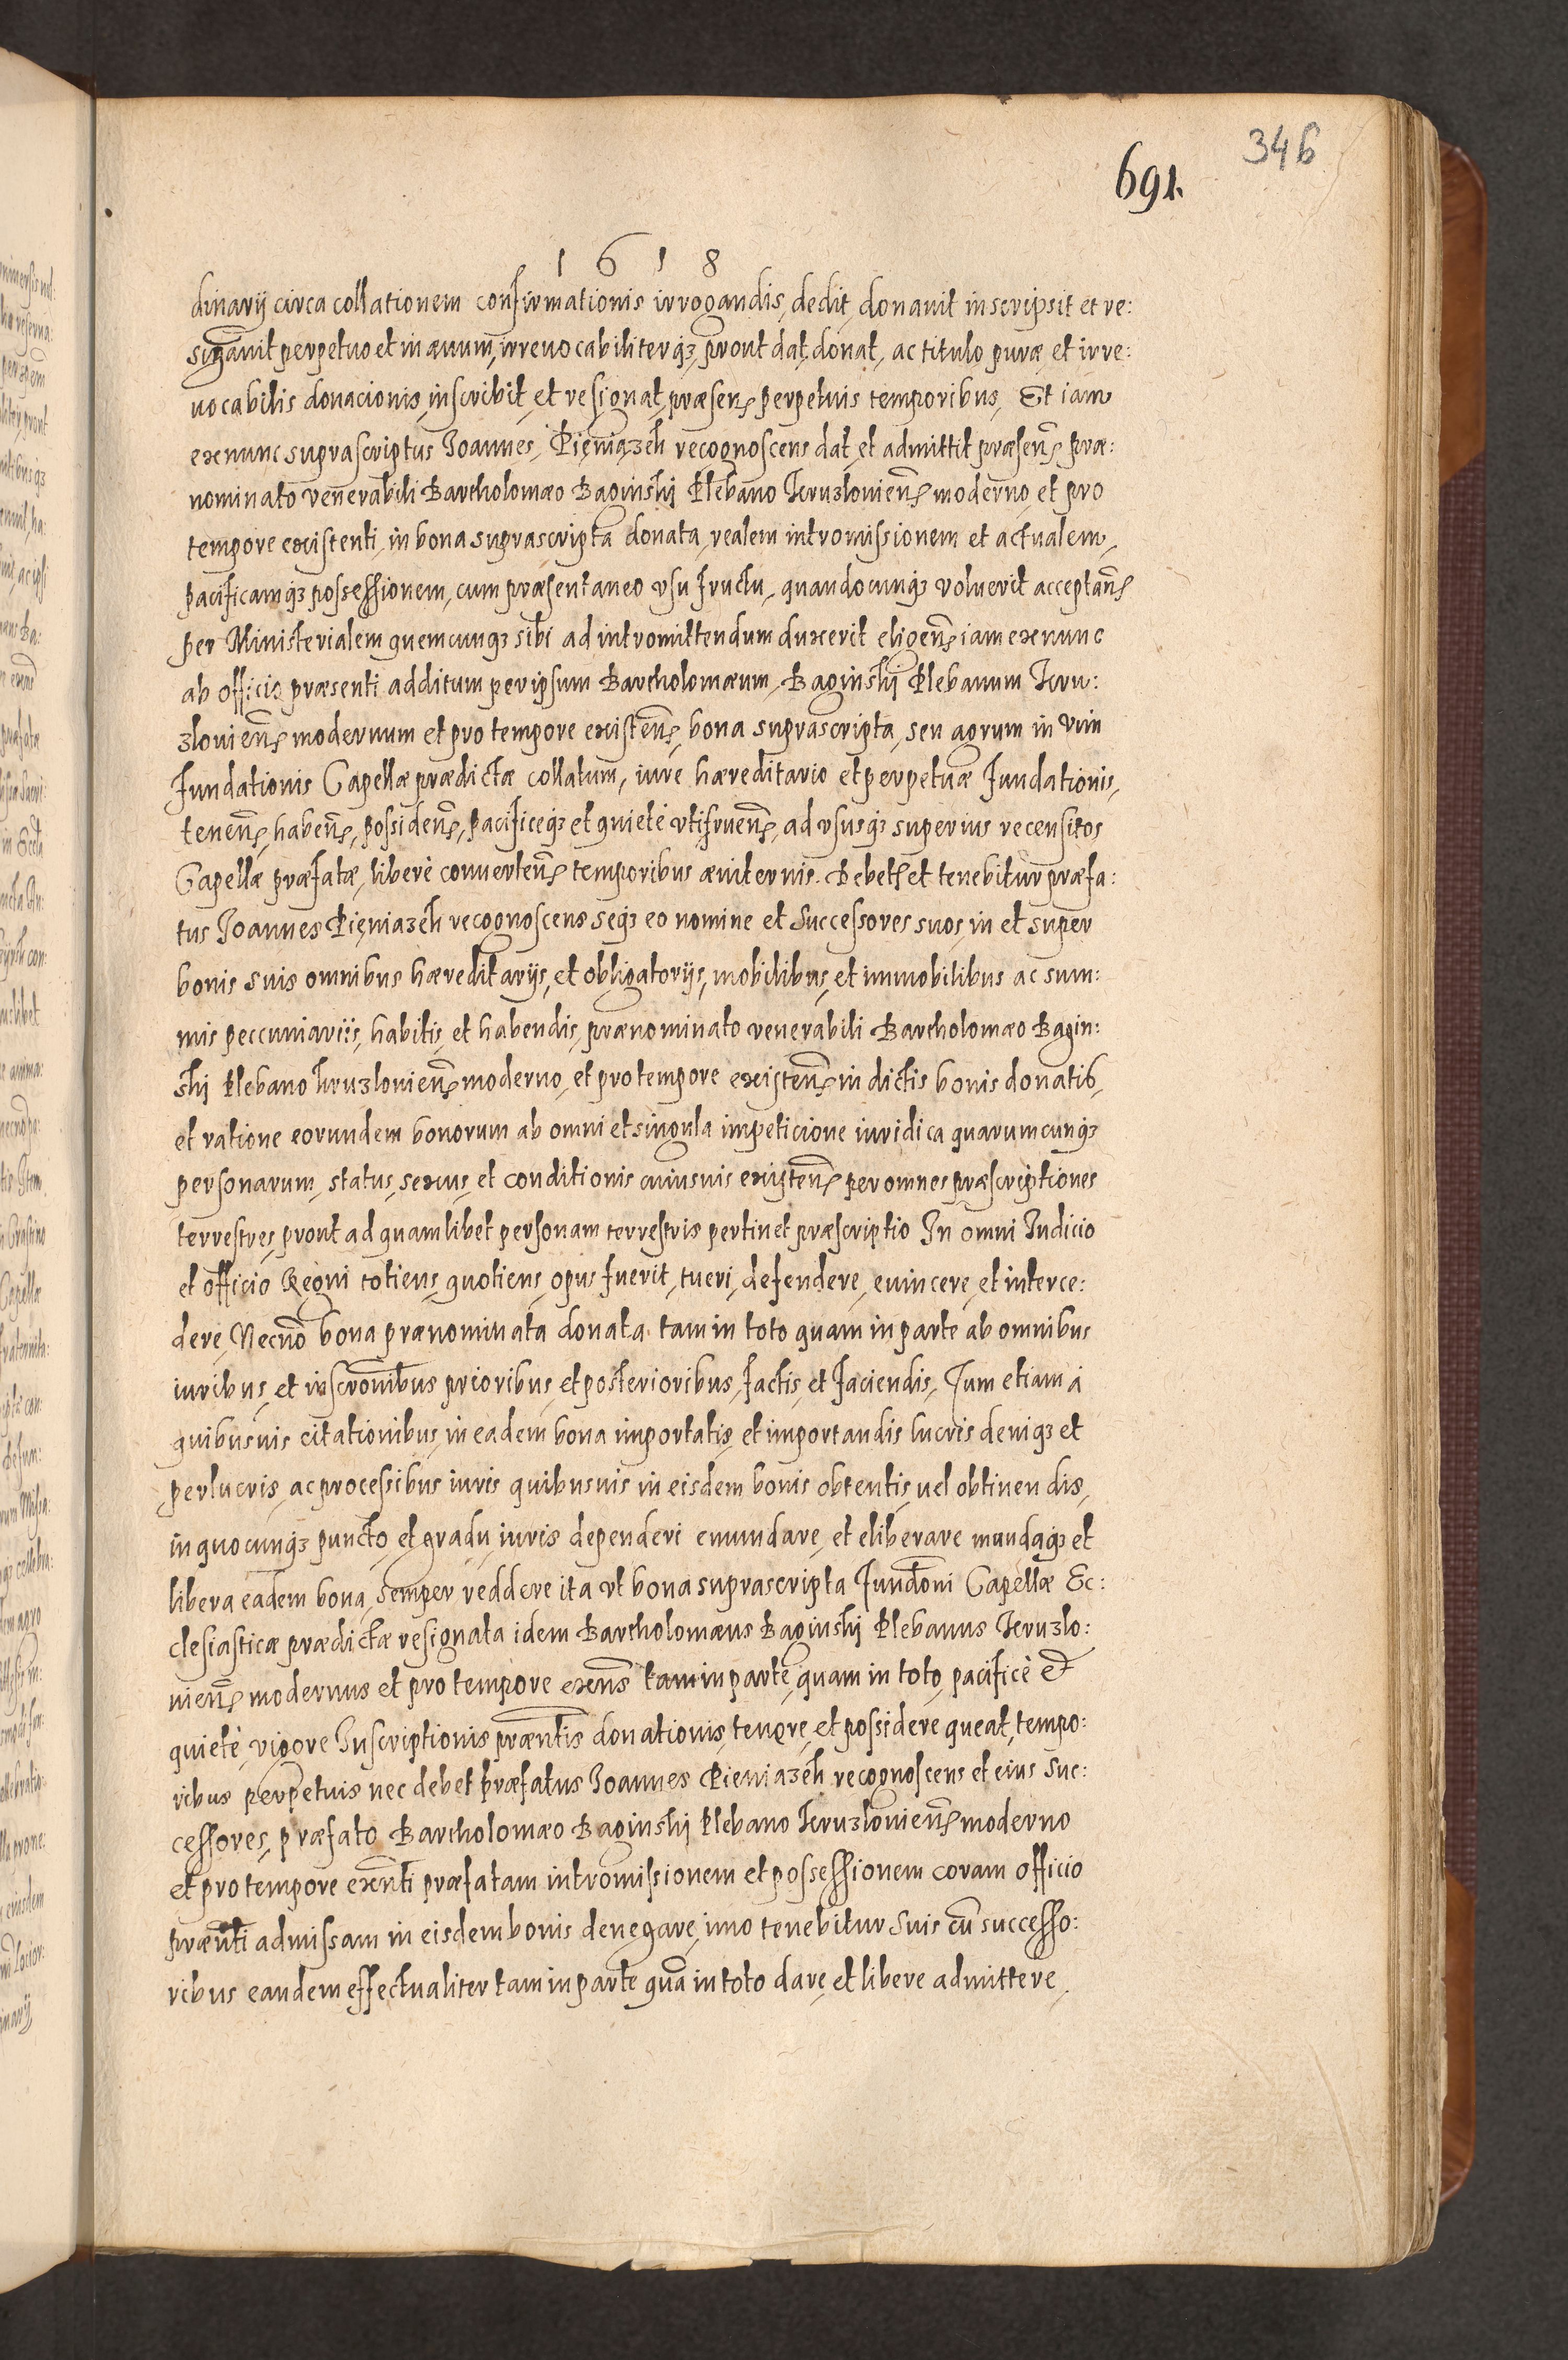 346
691.
1618
dinarij circa collationem confirmationis irrogandis, dedit, donauit inscripsit et re:
signauit perpetuo et in æuum, irreuocabiliterq3, prout dat, donat, ac titulo puræ et irre:
uocabilis donacionis, inscribit, et resignat, præsen̄ perpetuis temporibus, Et iam
exnunc suprascriptus Joannes, Pieniązek recognoscens dat, et admittit præsen̄ præ:
nominato venerabili Bartholomæo Baginski Plebano Jeruzlonien̄ moderno, et pro
tempore existenti, in bona suprascripta donata, realem intromissionem et actualem,
pacificamq3 possessionem, cum præsentaneo vsu fructu, quandocunq3 voluerit acceptan̄
per Ministerialem quemcunq3 sibi ad intromittendum duxerit eligen̄ iam exnunc
ab officio præsenti additum per ipsum Bartholomæum, Baginskj Plebanum Jeru:
zlonien̄ modernum et pro tempore existen̄, bona suprascripta, seu agrum in vim
fundationis Capellæ prædictæ collatum, iure hæreditario et perpetuæ fundationis,
tenen̄, haben̄, possiden̄, pacificeq3 et quietè vtifruen̄, ad vsusq3 superius recensitos
Capellæ præfatæ, liberè conuerten̄ temporibus æuiternis. Debet, et tenebitur præfa:
tus Joannes Pieniązek recognoscens seq3 eo nomine et Successores suos, in et super
bonis suis omnibus hæreditarijs, et obligatorijs, mobilibus, et immobilibus ac sum:
mis peccuniarijs, habitis, et habendis, prænominato venerabili Bartholomæo Bagin:
ski Plebano Jeruzlonien̄ moderno, et pro tempore existen̄ in dictis bonis donatis,
et ratione eorundem bonorum ab omni et singula impeticione iuridica quarumcunq3
personarum, status, sexus, et conditionis cuiusuis existen̄ per omnes præscriptiones
terrestres, prout ad quamlibet personam terrestris pertinet præscriptio In omni Iudicio
et officio Regni totiens, quotiens, opus fuerit, tueri, defendere, euincere, et interce:
dere, Necnō bona prænominata donata, tam in toto quam in parte ab omnibus
iuribus, et inscrōnibus prioribus, et posterioribus, factis, et faciendis, Tum etiam à
quibusuis citationibus, in eadem bona importatis, et importandis lucris deniq3 et
perlucris, ac processibus iuris quibusuis in eisdem bonis obtentis, uel obtinendis,
in quocunq3 puncto, et gradu, iuris dependeri emundare, et eliberare mundaq3 et
libera eadem bona, semper reddere ita vt bona suprascripta fundōni Capellæ Ec:
clesiasticæ prædictæ resignata idem Bartholomæus Baginski Plebanus Jeruzlo:
nien̄ modernus et pro tempore exēns tam in parte, quam in toto, pacificè et
quietè, vigore Inscriptionis præntis donationis, tenere, et possidere queat, tempo:
ribus perpetuis nec debet præfatus Joannes Pieniazek recognoscens et eius Suc:
cessores, præfato Bartholomæo Baginski Plebano Jeruzlonien̄ moderno
et pro tempore exēnti præfatam intromissionem et possessionem coram officio
prænti admissam in eisdem bonis denegare, imo tenebitur suis cū successo:
ribus eandem effectualiter tam in parte quā in toto dare, et libere admittere,